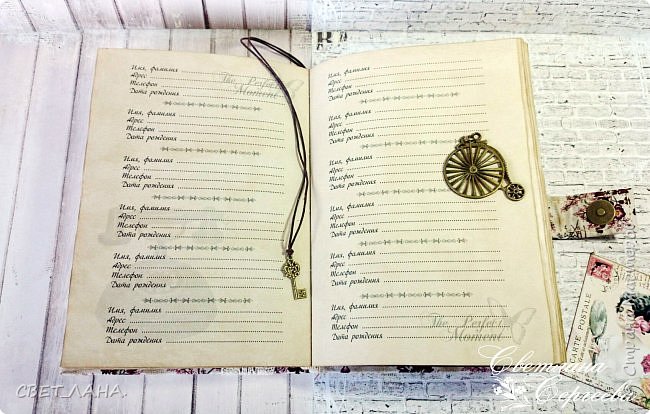 Имя, фамилия
The Perfect
Адрес
Moment
Телефон
Дата рождения
Имя, фамилия
Адрес
Телефон
Дата рождения
Имя, фамилия
Адрес
Телефон
Дата рождения
Имя, фамилия
Адрес
Телефон
Дата рождения
Имя, фамилия
Адрес
Телефон
Дата рождения
Имя, фамилия
Адрес
Телефон
Дата рождения
Имя, фамилия
Адрес
Телефон
Дата рождения
Имя, фамилия
Адрес
Телефон
Дата рождения
Имя, фамилия
Адрес
Телефон
Дата рождения
Имя, фамилия
Адрес
Телефон
Дата рождения
Имя, фамилия
Адрес
Телефон
Дата рождения
Имя, фамилия
Адрес
Телефон
Дата рождения
The Perfect
Moment
CARTE POSTALE
Светлана
Сергеева
СВЕТ.ЛАНА.